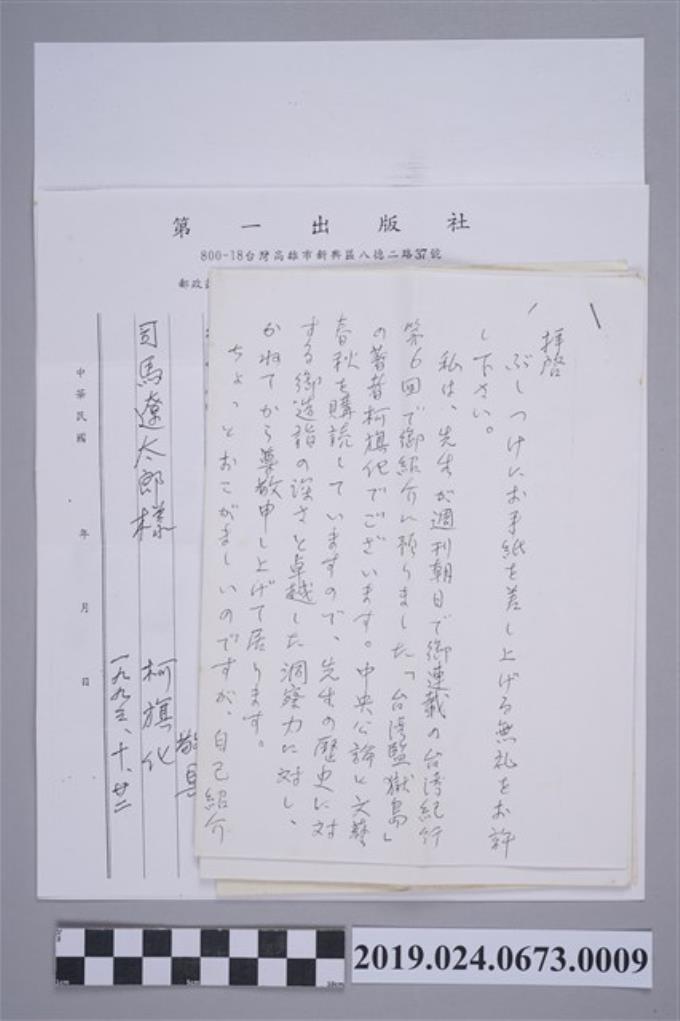 第一出版社
800-18台灣高雄市新興區八德二路37號
郵政
拝啓
ぶしつけにお手紙を差し上げる無礼をお許
し下さい。
私は、先生が週刊朝日で御連載の台湾紀行
第6回で御紹介に預りました「台湾監獄島」
の著者柯旗化でございます。中央公論と文藝
春秋を購読していますので、先生の歴史に対
する御造詣の深さと卓越した洞察力に対し、
かねてから尊敬申し上げて居ります。
ちょっとおこがましいのですが、自己紹介
敬具
柯旗化
一九九三、十、廿二
司馬遼太郎様
中華民國 年 月 日
2019.024.0673.0009